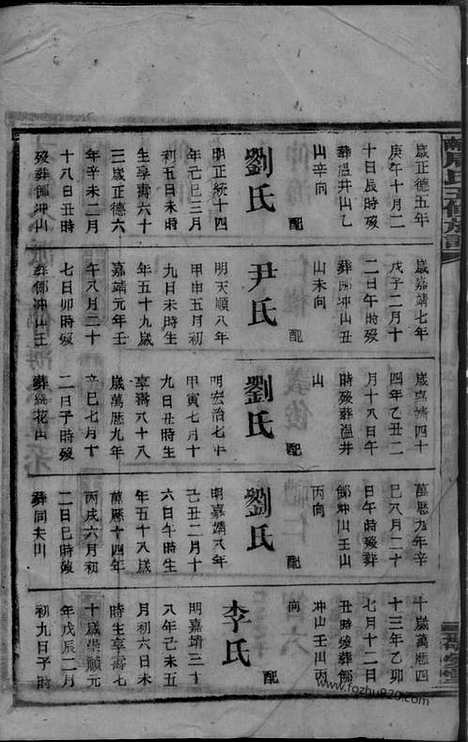 歲正德五年
庚午十月二
十日辰時殁
葬温井山乙
山辛向
配
劉氏
明正統十四
年己巳三月
初五日未時
生享壽六十
三歲正德六
年辛未二月
十八日丑時
殁葬鄧冲山
歲嘉靖七年
戊子二月十
二日午時殁
葬鄧冲山丑
山未向
配
尹氏
明天順八年
甲申五月初
九日未時生
年五十九歲
嘉靖元年壬
午八月二十
七日卯時殁
葬鄧冲山壬
歲嘉靖四十
四年乙丑二
月十八日午
時殁葬温井
山
配
劉氏
明宏治七年
甲寅七月十
九日丑時生
享壽八十八
歲萬歷九年
辛巳七月十
二日子時殁
葬
花山
萬歷九年辛
巳八月二十
日午時殁葬
鄧冲山壬山
丙向
配
劉氏
明嘉靖八年
己丑二月十
六日午時生
年五十八歲
萬歷十四年
丙戌六月初
二日巳時殁
葬同夫山
十歲萬歷四
十三年乙卯
七月十二日
丑時殁葬鄧
冲山壬山丙
向
配
李氏
明嘉靖三十
八年己未五
月初六日未
時生享壽七
十歲崇禎元
年戊辰二月
初九日子時
www.fogzhu920.com